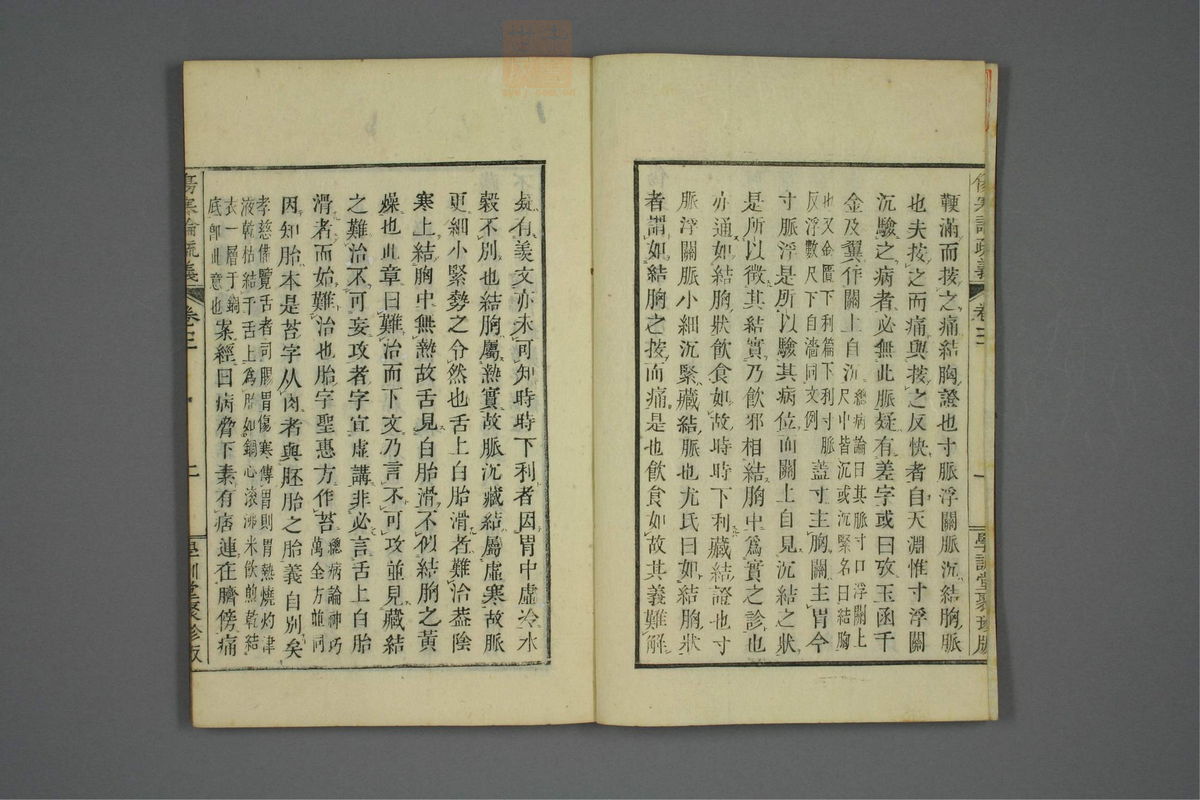 鞕滿而按之痛結胸證也寸脈浮關脈沉結胸脈
也夫按之而痛與按之反快者自天淵惟寸浮關
沉驗之病者必無此脈疑有差字或曰攷玉函千
金及翼作關上自沉總病論曰其脈寸口浮關上
尺中皆沉或沉緊名曰結胸
也又金匱下利篇下利寸脈
反浮數尺下自濇同文例蓋寸主胸關主胃今
寸脈浮是所以驗其病位而關上自見沉結之狀
是所以徵其結實乃飲邪相結胸中爲實之診也
亦通如結胸狀飲食如故時時下利藏結證也寸
脈浮關脈小細沉緊藏結脈也尤氏曰如結胸狀
者謂如結胸之按而痛是也飲食如故其義難解
疑有羨文亦未可知時時下利者因胃中虛冷水
穀不別也結胸屬熱實故脈沉藏結屬虛寒故脈
更細小緊勢之令然也舌上白胎滑者難治蓋陰
寒上結胸中無熱故舌見白胎滑不似結胸之黃
燥也此章曰難治而下文乃言不可攻並見藏結
之難治不可妄攻者字宜虛講非必言舌上白胎
滑者而始難治也胎字聖惠方作苔總病論神巧
萬全方並同
因知胎本是苔字从肉者與胚胎之胎義自別矣
孝慈備覽舌者司腸胃傷寒傳胃則胃熱燒灼津
液乾枯結于舌上爲胎如鍋心滾沸米飲煎乾結
衣一層于鍋
底卽此意也案經曰病脅下素有痞連在臍傍痛
傷寒論疏義
卷三
二
學訓堂聚珍版